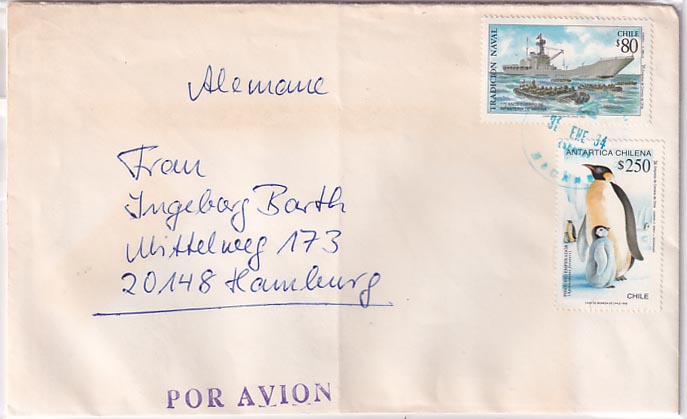 TRADICION NAVAL
CHILE
$80
ENE
ANTARTICA CHILENA
$250
CHILE
Alemane
Frau
Ingeborg Barth
Mittelweg 173
20148 Hamburg
POR AVION